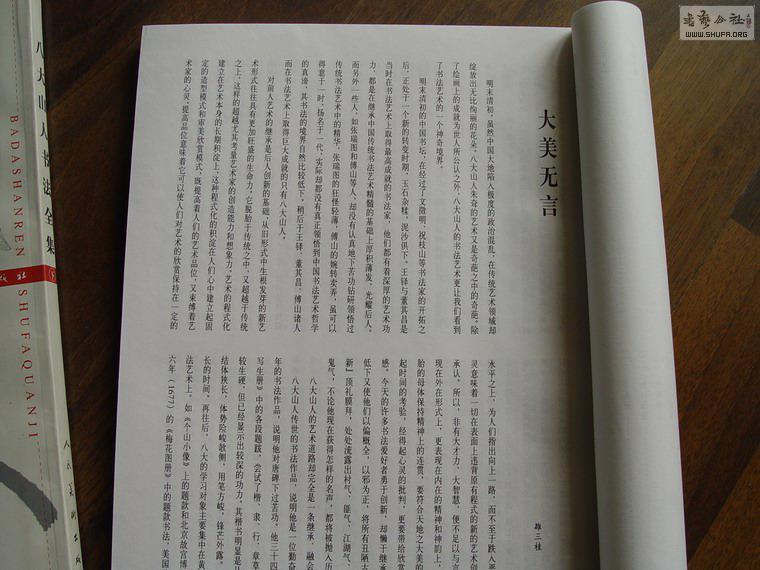 大美无言
雄三杜
明末清初，虽然中国大地陷入极度的政治混乱，在传统艺术领域却
绽放出无比绚丽的花朵，八大山人朱耷的艺术又是奇葩之中的奇葩。除
了绘画上的成就为世人所公认之外，八大山人的书法艺术更让我们看到
了书法艺术的一个神奇境界。
明末清初的中国书坛，在经过了文徵明、祝枝山等书法家的开拓之
后，正处于一个新的转变时期，玉石杂糅，泥沙俱下。王铎与董其昌是
当时在书法艺术上取得最高成就的书法家，他们都有着深厚的艺术功
力，都是在继承中国传统书法艺术精髓的基础上厚积薄发，光耀后人。
而另外一些人，如张瑞图和傅山等人，却没有认真地下苦功钻研领悟过
传统书法艺术中的精华，张瑞图的狂怪轻薄，傅山的婉转卖弄，虽可以
得意于一时，扬名于一代，实际却都没有真正领悟到中国书法艺术哲学
的真谛，其书法的境界自然比较低下。稍后于王铎、董其昌、傅山诸人
而在书法艺术上取得巨大成就的只有八大山人。
对前人艺术的继承是后人创新的基础，从旧形式中生根发芽的新艺
术形式往往具有更加旺盛的生命力，它脱胎于传统之中，又超越于传统
之上，这样的超越尤其考量艺术家的创造能力和想象力。艺术的程式化
建立在艺术本身的长期积淀上，这种程式化的积淀在人们心中建立起固
定的造型模式和审美欣赏模式，既提高着人们的艺术品位，又束缚着艺
术家的心灵，提高品位意味着它可以使人们对艺术的欣赏保持在一定的
水平之上，为人们指出向上一路，而不至于跌入恶
灵意味着一切在表面上违背原有程式的新的艺术创
承认。所以，非有大才力、大智慧，便不足以与言
现在外在形式上，更表现在内在的精神和神韵上，
胎的母体保持精神上的连贯，要符合天地之大美的
起时间的考验，经得起心灵的批判，更要带给欣赏
感。今天的许多书法爱好者勇于创新，却惰于继承
低下又使他们以偏概全，以邪为正，将所有丑陋
新”顶礼膜拜，处处流露出村气、匪气、江湖气、
鬼气，不论他现在获得怎样的名声，都将被抛入历
八大山人的艺术道路却完全是一条继承、融会
八大山人传世的书法作品，说明他是一位勤奋
年的书法作品，说明他对唐碑下过苦功，他三十四
写生册》中的各段题跋，尝试了楷、隶、行、章草
较生硬，但已经显示出较深的功力。其楷书明显是
结体狭长，体势险峻敧侧，用笔方峻，锋芒外露。
长的时间。再往后，八大的学习对象主要集中在黄
法艺术上。如《个山小像》上的题款和北京故宫博
六年（1677）的《梅花图册》中的题款书法，美国
八大山人书法全集
BADASHANREN SHUFAQUANJI
下
人民美术出版
WWW.SHUFA.ORG